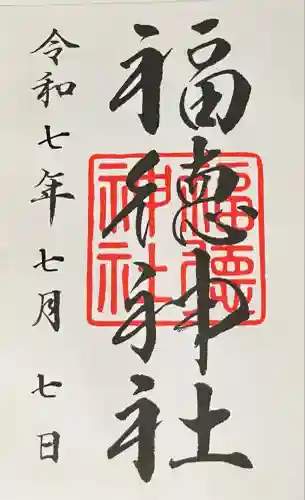 福徳神社
福德
神社
令和七年七月七日